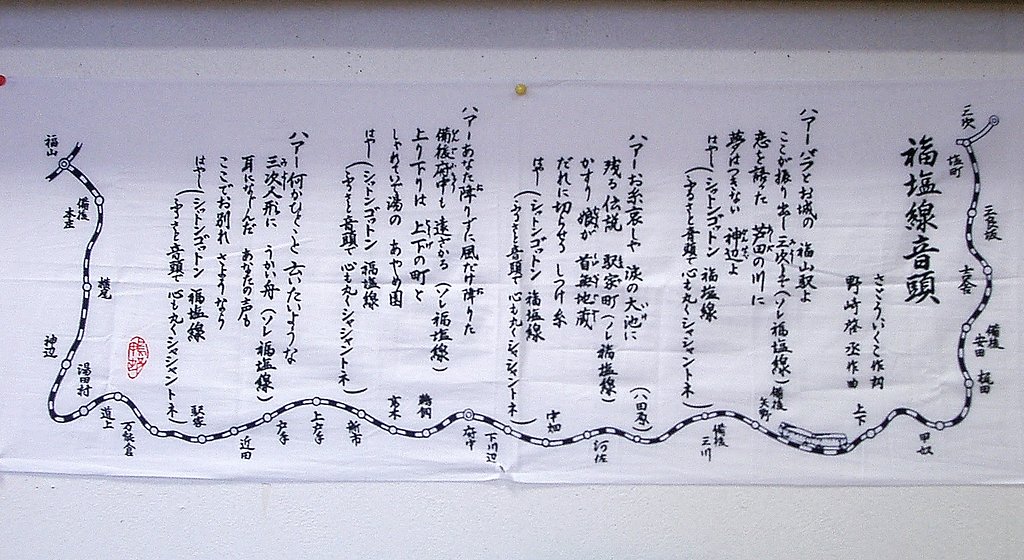 福塩線音頭
さとういくこ作詞
野崎啓丞作曲
ハアー バラとお城の 福山駅よ
ここが振り出し 三次まで(ソレ福塩線)
恋を語った 芦田の川に
夢はつきない 神辺よ
はやし(シャットンゴットン 福塩線
(ふるさと音頭で心も丸くシャンシャントネ)
ハアー お糸恋しや 涙の大池に
残る伝説 駅家町(ソレ福塩線)
かすり娘が 首無地蔵
だれに切らせう しつけ糸
はやし(シャットンゴットン 福塩線
(ふるさと音頭で心も丸くシャンシャントネ)
ハアー あなた降りずに風だけ降りた
備後府中も 遠ざかる(ソレ福塩線)
上り下りは 上下の町と
しゃれていで湯の あやめ園
はやし(シャットンゴットン 福塩線
(ふるさと音頭で心も丸くシャンシャントネ)
ハアー 何かひとこと 云いたいような
三次人形に うかい舟(ソレ福塩線)
耳になじんだ あなたの声も
ここでお別れ さようなら
はやし(シャットンゴットン 福塩線
(ふるさと音頭で心も丸くシャンシャントネ)
三次
塩町
三良坂
吉舎
備後安田
梶田
甲奴
上下
備後矢野
備後三川
(八田原)
河佐
中畑
下川辺
府中
鵜飼
高木
新市
上戸手
戸手
近田
駅家
万能倉
道上
湯田村
神辺
横尾
備後本庄
福山